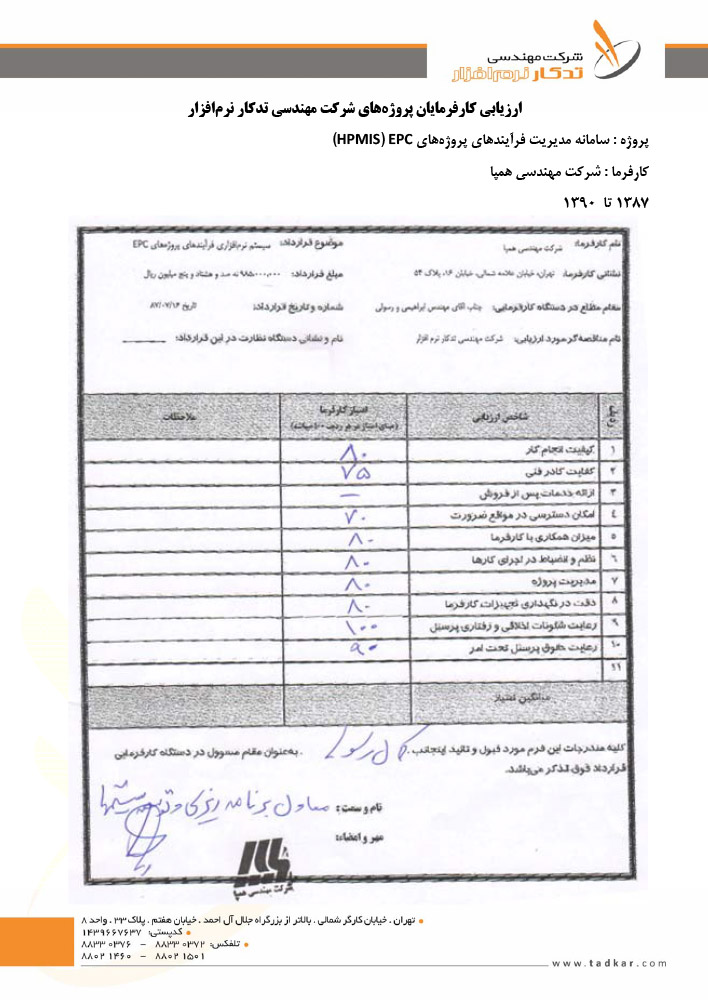 شرکت مهندسی
تدکار نرم‌افزار
ارزیابی کارفرمایان پروژه‌های شرکت مهندسی تدکار نرم‌افزار
پروژه : سامانه مدیریت فرآیندهای پروژه‌های EPC (HPMIS)
کارفرما : شرکت مهندسی همپا
۱۳۸۷ تا ۱۳۹۰
نام کارفرما: شرکت مهندسی همپا موضوع قرارداد: سیستم نرم‌افزاری فرآیندهای پروژه‌های EPC
نشانی کارفرما: تهران، خیابان علامه شمالی، خیابان ۱۶، پلاک ۵۴ مبلغ قرارداد: ۹۸۵،۰۰۰،۰۰۰ نه صد و هشتاد و پنج میلیون ریال
مقام مطلع در دستگاه کارفرمایی: جناب آقای مهندس ابراهیمی و رسولی شماره و تاریخ قرارداد: تاریخ ۸۷/۰۷/۱۶
نام مناقصه‌گر مورد ارزیابی: شرکت مهندسی تدکار نرم افزار نام و نشانی دستگاه نظارت در این قرارداد:
ردیف شاخص ارزیابی امتیاز کارفرما ملاحظات
(مبنای امتیاز در هر ردیف ۱۰۰ میباشد)
۱ کیفیت انجام کار ۸۰
۲ کفایت کادر فنی ۷۵
۳ ارائه خدمات پس از فروش —
٤ امکان دسترسی در مواقع ضرورت ۷۰
۵ میزان همکاری با کارفرما ۸۰
٦ نظم و انضباط در اجرای کارها ۸۰
۷ مدیریت پروژه ۸۰
۸ دقت در نگهداری تجهیزات کارفرما ۸۰
۹ رعایت شئونات اخلاقی و رفتاری پرسنل ۱۰۰
۱۰ رعایت حقوق پرسنل تحت امر ۹۰
۱۱
میانگین امتیاز
کلیه مندرجات این فرم مورد قبول و تائید اینجانب . رسولی . به‌عنوان مقام مسوول در دستگاه کارفرمایی
قرارداد فوق‌الذکر می‌باشد.
نام و سمت: معاون برنامه ریزی و توسعه سیستمها
مهر و امضاء:
شرکت مهندسی همپا
تهران . خیابان کارگر شمالی . بالاتر از بزرگراه جلال آل احمد . خیابان هفتم . پلاک ۳۳ . واحد ۸
کدپستی: ۱۴۳۹۶۶۷۶۳۷
تلفکس: ۸۸۳۳ ۰۳۷۲ – ۸۸۳۳ ۰۳۷۶
۸۸۰۲ ۱۵۰۱ – ۸۸۰۲ ۱۴۶۰
www.tadkar.com